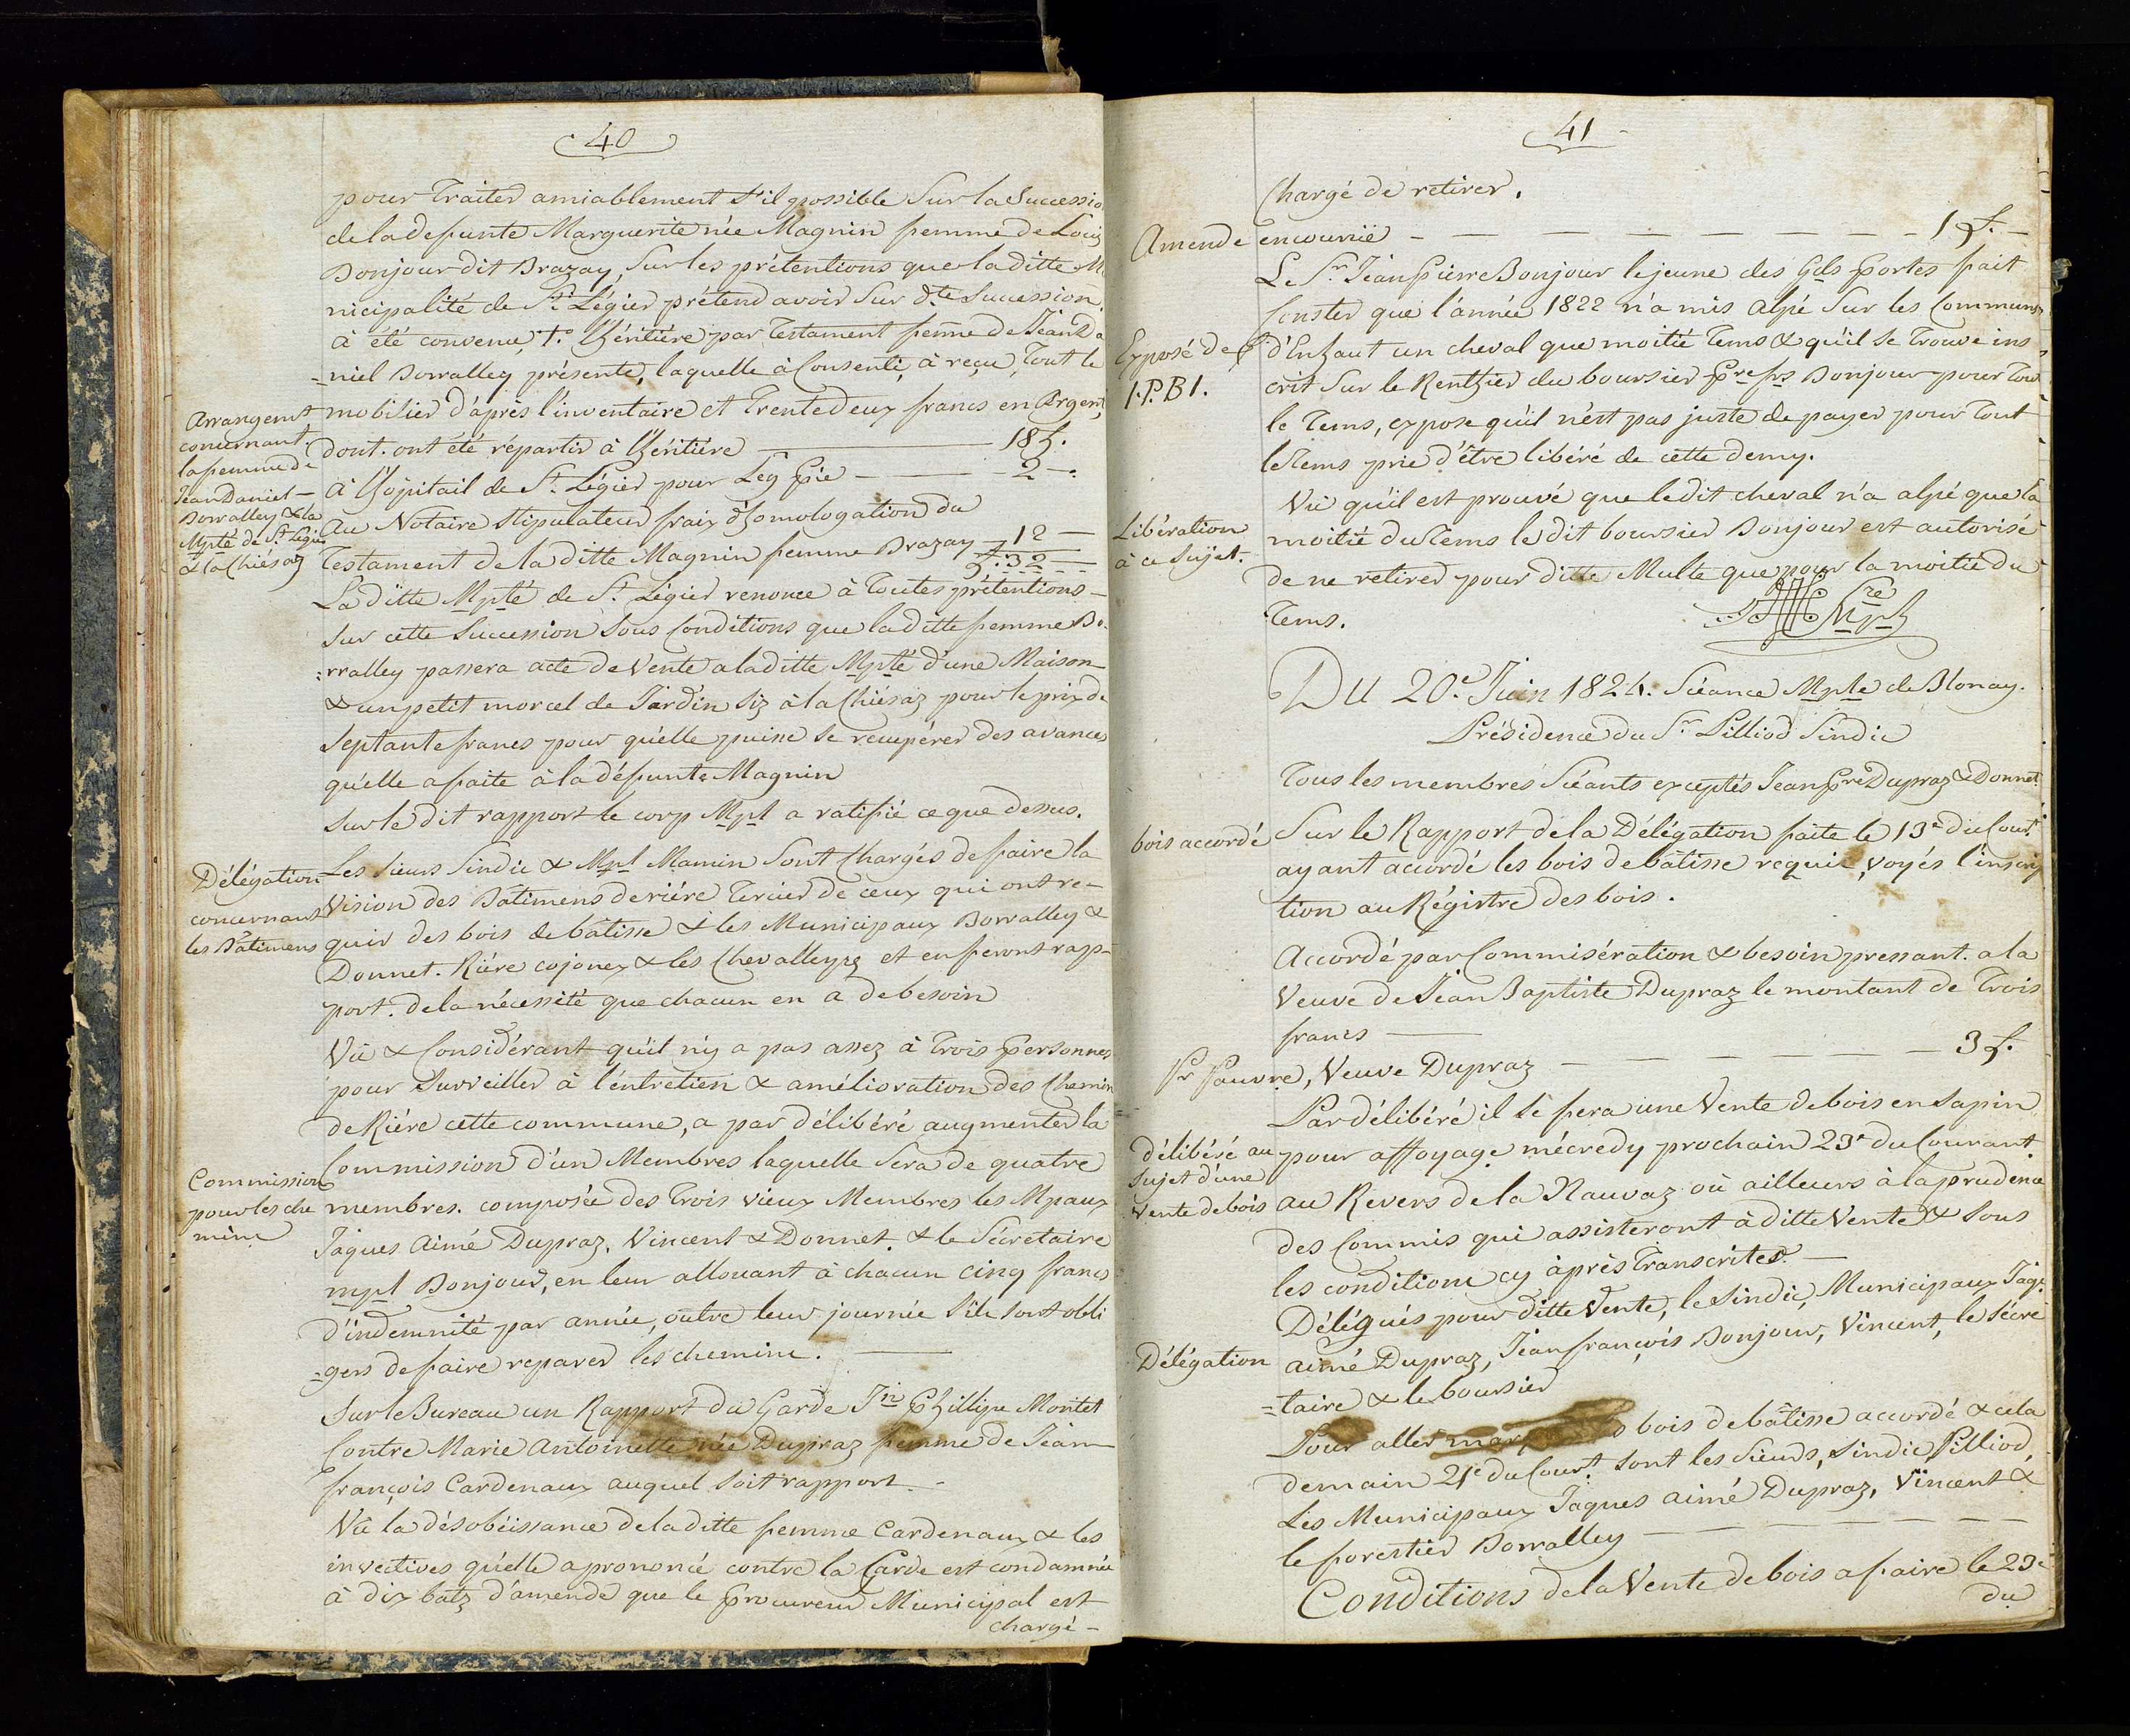 40
pour Traiter amiablement s'il possible Sur la Successio
de la defunte Marguerite née Magnin femme de Louis
Bonjour dit Brazay, Sur les prétentions que laditte M
nicipalité de St. Légier prétend avoir Sur dte. Succession
à été convenu, 1.o l'héritière par Testament femme de Jean Da
=niel Borralley présente, laquelle à Consenti, à reçu, Tout le
Arrangemt
concernant.
la femme de
Jean Daniel
Borralley & la
Mpté de St. Légier
& la Chiésaz
mobilier d'après l'inventaire et Trente deux francs en Argent,
dont ont été répartir à l'héritière — 18 f.
à l'hôpitail de St. Légier pour Leg Pie — 2 —.
au Notaire stipulateur frais d'homologation du
Testament de la ditte Magnin femme Brazay — 12 —
f. 32 —
La ditte Mpté de St. Légier renonce à Toutes prétentions
sur cette Succession Sous Conditions que la ditte femme Bo-
=rralley passera acte de Vente a la ditte Mpté d'une Maison
& un petit morcel de Jardin Siz à la Chiésaz pour le prix de
Septante francs pour qu'elle puisse se recupérer des avances
qu'elle a faite à la défunte Magnin
Sur le dit rapport le corp Mpl a ratifié ce que dessus.
Délégation
concernant
les Bâtimens
Les sieurs Sindic & Mpl Mamin Sont Chargés de faire la
Vision des Bâtimens deriére Tercier de ceux qui ont re-
quir des bois de bâtisse & les Municipaux Borralley &
Donnet. Riére cojonex & les Chevalleyrs et en feront rap-
port. de la nécessité que chacun en a de besoin
Vû & Considérant qu'il n'y a pas assez à Trois Personnes
pour Surveiller à l'entretien & amélioration des Chemin
de Riére cette commune, a par délibéré augmenter la
Commission
pour les che
mins
Commission d'un Membres laquelle Sera de quatre
membres. composée des Trois vieux Membres les Mpaux
Jaques Aimé Dupraz, Vincent & Donnet & le Sécretaire
mpl Bonjour, en leur allouant à chacun cinq francs
d'indemnité par année, outre leur journée S'ils sont obli
=gers de faire reparer les chemins.
Sur le Bureau un Rapport du Garde Jn Phillipe Montet
Contre Marie Antoinette née Dupraz femme de Jean
françois Cardenaux auquel soit rapport.
Vû la désobéissance de la ditte femme Cardenaux & les
invectives qu'elle a prononcé contre la Garde est condamnée
à dix batz d'amende que le Procureur Municipal est
chargé -
41
Chargé de retirer.
Amende encourrüe — 1 f. —
Exposé de f.
J.P.B J.
Le Sr. Jean Pierre Bonjour le jeune des Gds Portes fait
Conster que l'année 1822 n'a mis alpé Sur les Communs
d'Enhaut un cheval que moitié Tems & qu'il se Trouve ins
crit Sur le Renthier du boursier Pre frs Bonjour pour Tout
le Tems, expose qu'il n'est pas juste de payer pour Tout
le Tems prie d'être libéré de cette demy.
Libération
à ce Sujet.
Vû qu'il est prouvé que le dit cheval n'a alpé que la
moitié du Tems le dit boursier Bonjour est autorisé
de ne retirer pour ditte Multe que pour la moitié du
Tems.
Sre Mpl
Du 20.e Juin 1824. Séance Mple de Blonay.
Présidence du Sr. Pilliod Sindic
Tous les membres Séants exceptés Jean Pre Dupraz & Donnet
bois accordé
Sur le Rapport de la Délégation faite le 13e du Court.
ayant accordé les bois de bâtisse requis, voyés l'inscrip
tion au Régistre des bois.
Accordé par Commisération & besoin pressant. a la
Veuve de Jean Baptiste Dupraz le montant de Trois
francs —
Pr Pauvre, Veuve Dupraz — 3 f.
délibéré au
sujet d'une
Vente de bois
Par délibéré il se fera une Vente de bois en Sapin
pour affoyage mécredy prochain 23e du Courant
au Revers de la Nauvaz où ailleurs à la prudence
des Commis qui assisteront à ditte Vente & Sous
les conditions cy après Transcrites. —
Délégation
Délégués pour ditte Vente, le Sindic, Municipaux Jaqs
aimé Dupraz, Jean françois Bonjour, Vincent, le Sécré
=taire & le boursier
Pour aller bois de bâtisse accordé & cela
demain 21e du Court. sont les Sieurs, Sindic Pilliod,
Les Municipaux Jaques aimé Dupraz, Vincent &
le forestier Borralley —
Conditions de la Vente de bois a faire le 23e
du